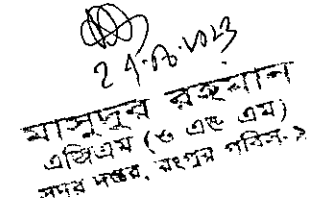 মাসুদুর রহমান
এজিএম (ও এন্ড এম)
সদর দপ্তর, রংপুর পবিস-১